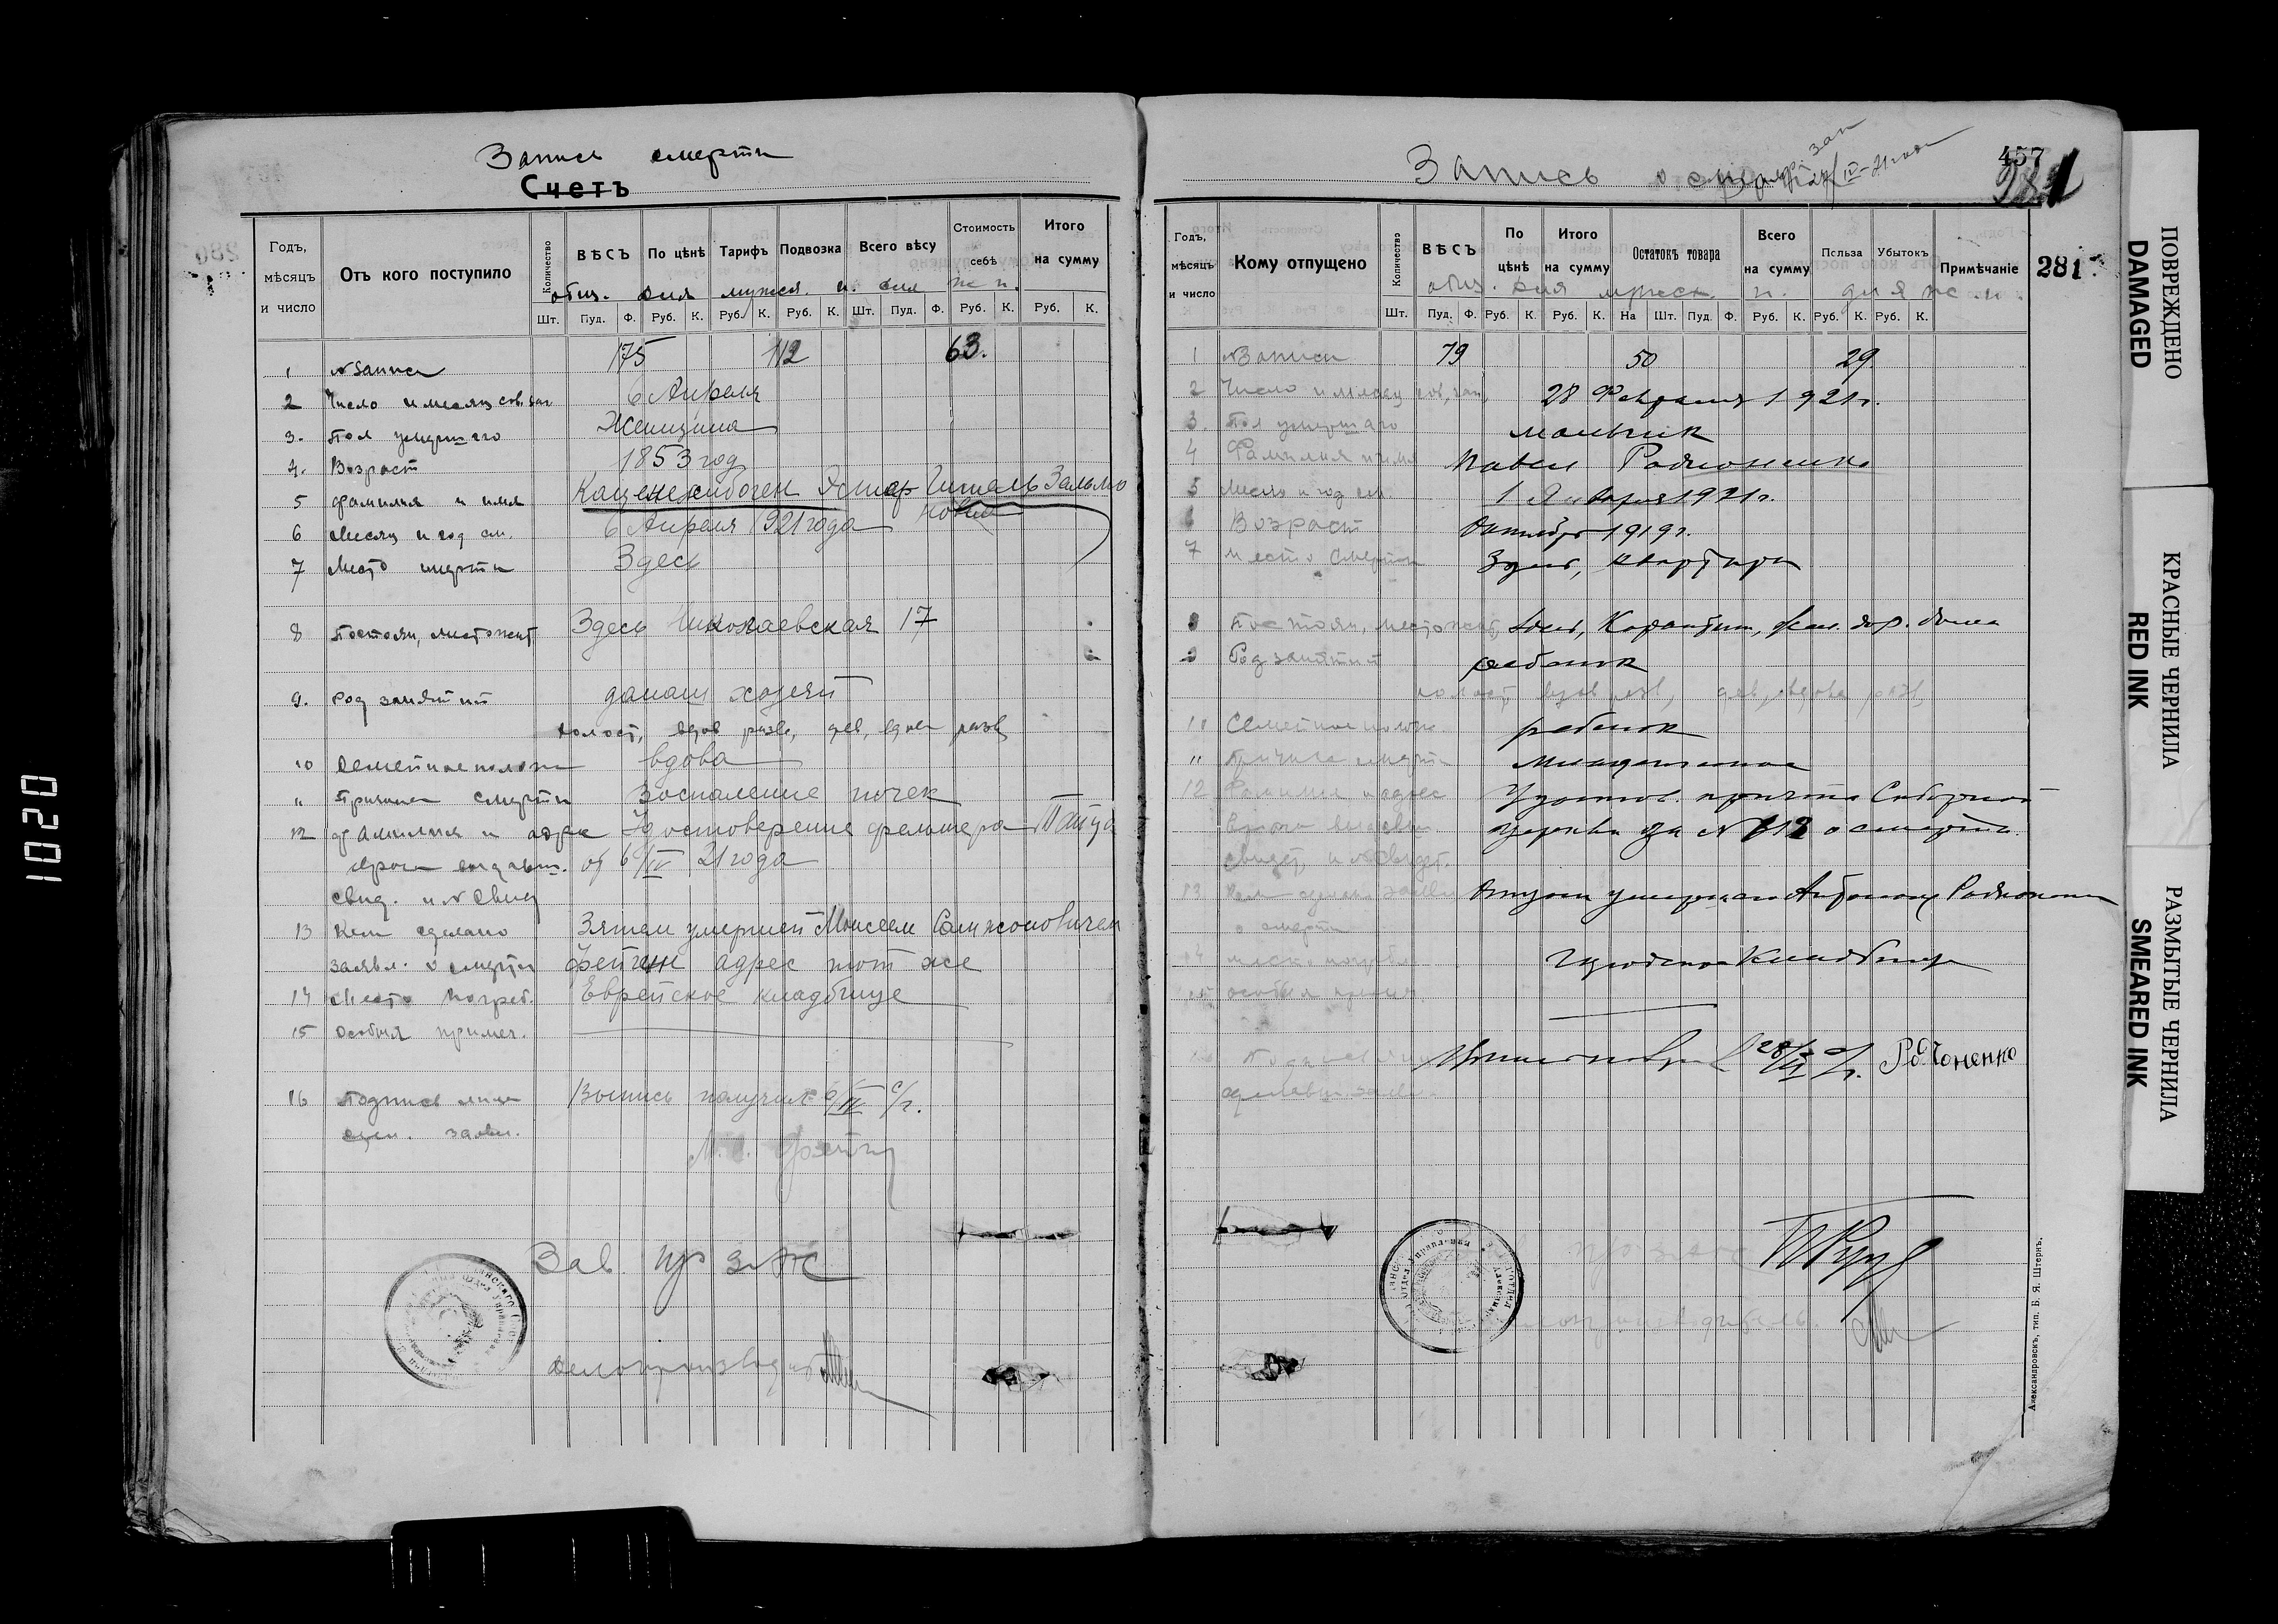 Запись смерти
Счетъ
Годъ, мѣсяцъ и число
Отъ кого поступило
Количество
Шт.
ВѢСЪ
Пуд. Ф.
По цѣнѣ
Руб. К.
Тарифъ
Руб. К.
Подвозка
Руб. К.
Всего вѣсу
Шт. Пуд. Ф.
Стоимость себѣ
Руб. К.
Итого на сумму
Руб. К.
общ. для мужск. п. для ж. п.
1 № записи 175 112 63.
2 Число и месяц сов. зап 6 Апреля
3. Пол умершаго Женщина
4. Возраст 1853 год
5 Фамилия и имя Каценеленбоген Эстер Гитель Зальмо
новна
6 Месяц и год см. 6 Апреля 1921 года
7 Место смерти Здесь
8 Постоян. местожит Здесь Николаевская 17
9. Род занятий домаш хозяй
холост, вдов разв, дев, вдова разв
10 Семейное полож вдова
" Причина смерти Воспаление почек
12 Фамилия и адрес Удостоверение фельшера
врача выдавш. от 6/IV 21 года
свид. и № свид
13 Кем сделано Зятем умершей Моисеем Самжсоновичем
заявл. о смерти Фейгин адрес тот же
14 Место погреб. Еврейское кладбище
15 Особыя примеч.
16 Подпись лица Выпись получил 6/IV с/г.
сдел. заявл.
Зав. п/о ЗАГС
Делопроизвод
Запись о смерти
457
281
281
Годъ, мѣсяцъ и число
Кому отпущено
Количество
Шт.
ВѢСЪ
Пуд. Ф.
По цѣнѣ
Руб. К.
Итого на сумму
Руб. К.
Остатокъ товара
На Шт. Пуд. Ф.
Всего на сумму
Руб. К.
Польза
Руб. К.
Убытокъ
Руб. К.
Примѣчаніе
общ. для мужск. п. для ж. п.
1 № Записи 79 50 29
2 Число и месяц сов. зап. 28 Февраля 1921 г.
3. Пол умершаго мальчик
4 Фамилия и имя Павел Родионенко
5 Месяц и год см 1 Января 1921 г.
6 Возраст Октябрь 1919 г.
7 Место смерти Здесь, квартира
8 Постоян. местожит. Здесь, Карантин,
9 Род занятий ребенок
холост, вдов разв, дев, вдова разв,
10 Семейное полож. ребенок
" Причина смерти Младенческая
12 Фамилия и адрес Удостов. причта Соборной
врача выдавш церкви за № 812 о смерти
свидет. и № свидет.
13 Кем сделано заявл Отцом умершаго
о смерти
14 место погреб. Городское Кладбище
15 особыя примеч.
Подпись лица 28/II с/г. Родионенко
сделавш. заяв.
Александровскъ, тип. Б. Я. Штернъ.
ПОВРЕЖДЕНО
DAMAGED
КРАСНЫЕ ЧЕРНИЛА
RED INK
РАЗМЫТЫЕ ЧЕРНИЛА
SMEARED INK
1020